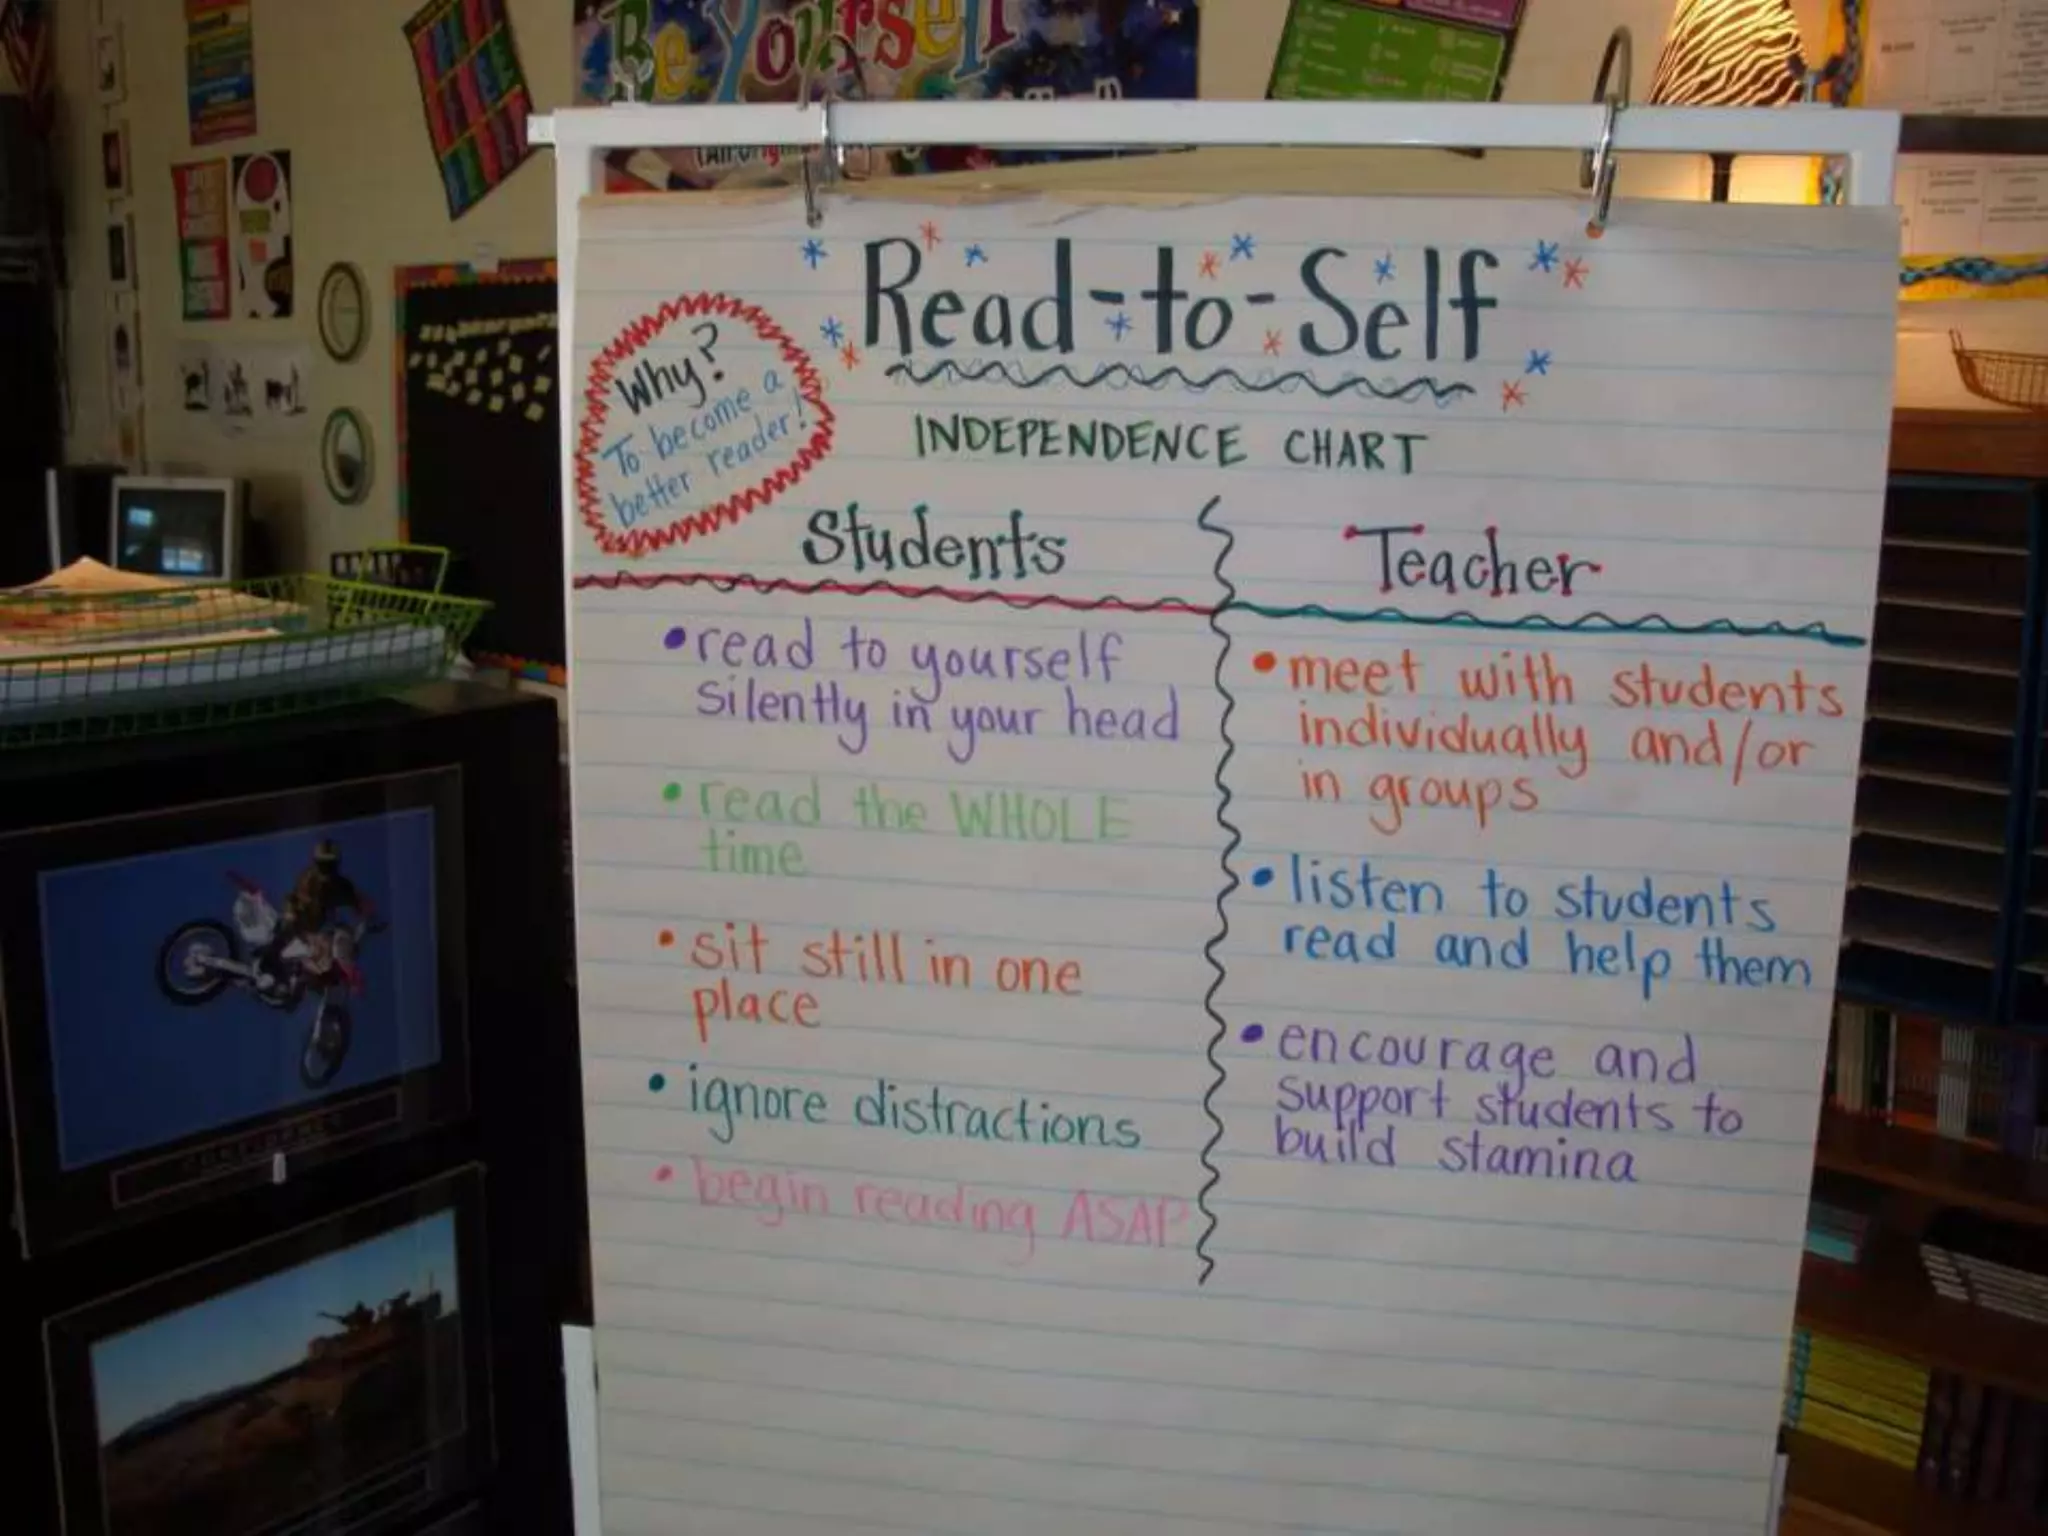 Be Yourself
Read-to-Self
Why?
To become a
better reader!
INDEPENDENCE CHART
Students
• read to yourself
silently in your head
• read the WHOLE
time
• sit still in one
place
• ignore distractions
• begin reading ASAP
Teacher
• meet with students
individually and/or
in groups
• listen to students
read and help them
• encourage and
support students to
build stamina